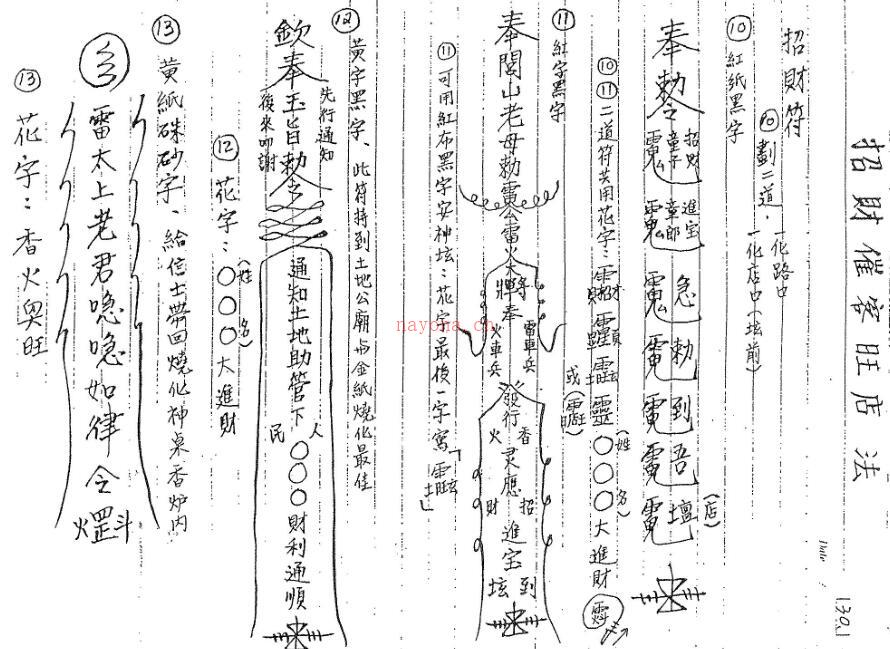 招財催客旺店法
Date
139.1
招財符
⑩劃二道,一化路口
一化店中(坛前)
⑩
紅紙黑字
奉勅令
招財童子
進宝
急勅到吾壇
(店)
⑩⑪二道符共用花字:
或
(姓名)
○○○大進財
⑪
紅字黑字
奉閭山老母勅雷令雷火大將奉
雷車兵
火車兵
發行
香火
灵應
招財
進宝
到坛
⑪可用紅布黑字安神坛:花字最後一字寫
⑫
黃字黑字、此符持到土地公廟与金紙燒化最佳
先行通知
欽奉玉旨勅令
後來叩謝
通知土地助管下
人民
○○○財利通順
⑫花字:○○○大進財
(姓名)
⑬
黃紙硃砂字、給信士帶回燒化神桌香炉內
雷太上老君唸唸如律令
⑬花字:香火興旺
nayona.cn